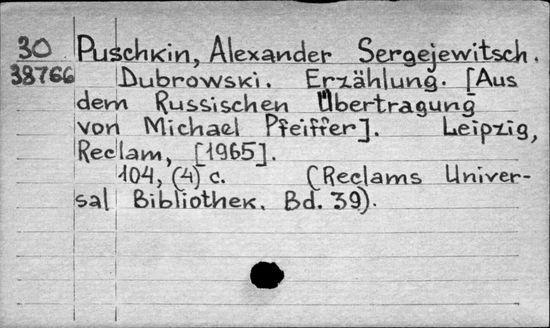 30 Puschkin, Alexander Sergejewitsch.
38766 Dubrowski. Erzählung. [Aus
dem Russischen Übertragung
von Michael Pfeiffer]. Leipzig,
Reclam, [1965].
104, (4) c. (Reclams Univer-
sal Bibliothek. Bd. 39).